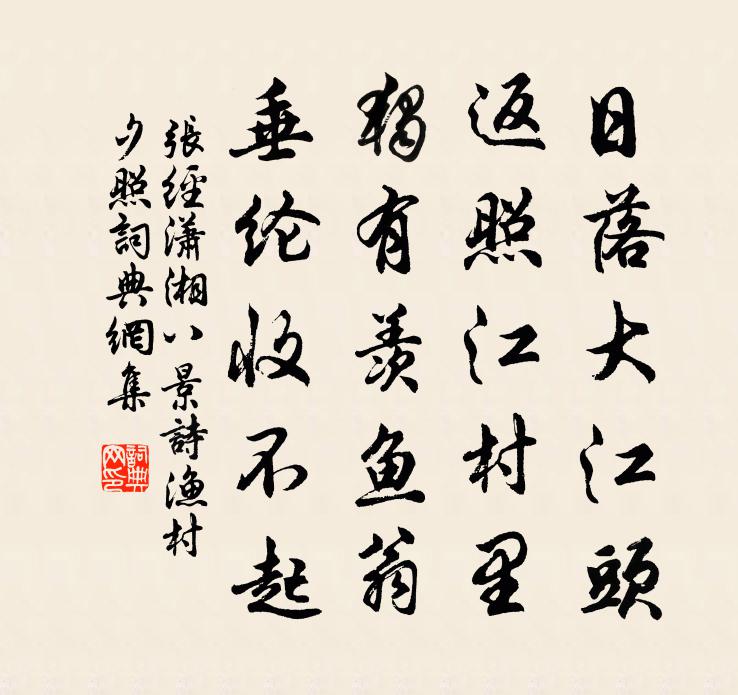 日落大江頭
返照江村里
独有羨魚翁
垂纶收不起
張經瀟湘八景詩漁村
夕照詞典網集
詞典
网印